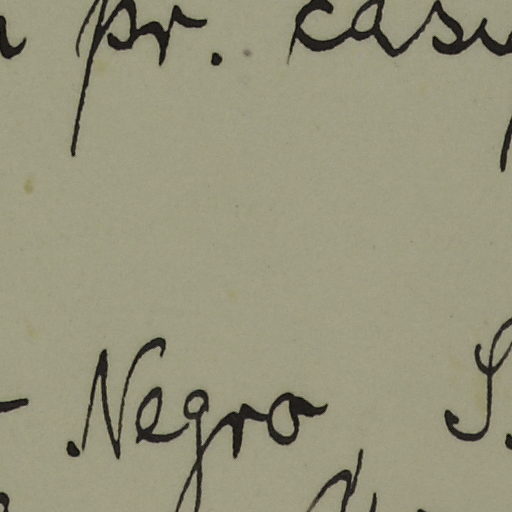 pr. casu
Negro S.